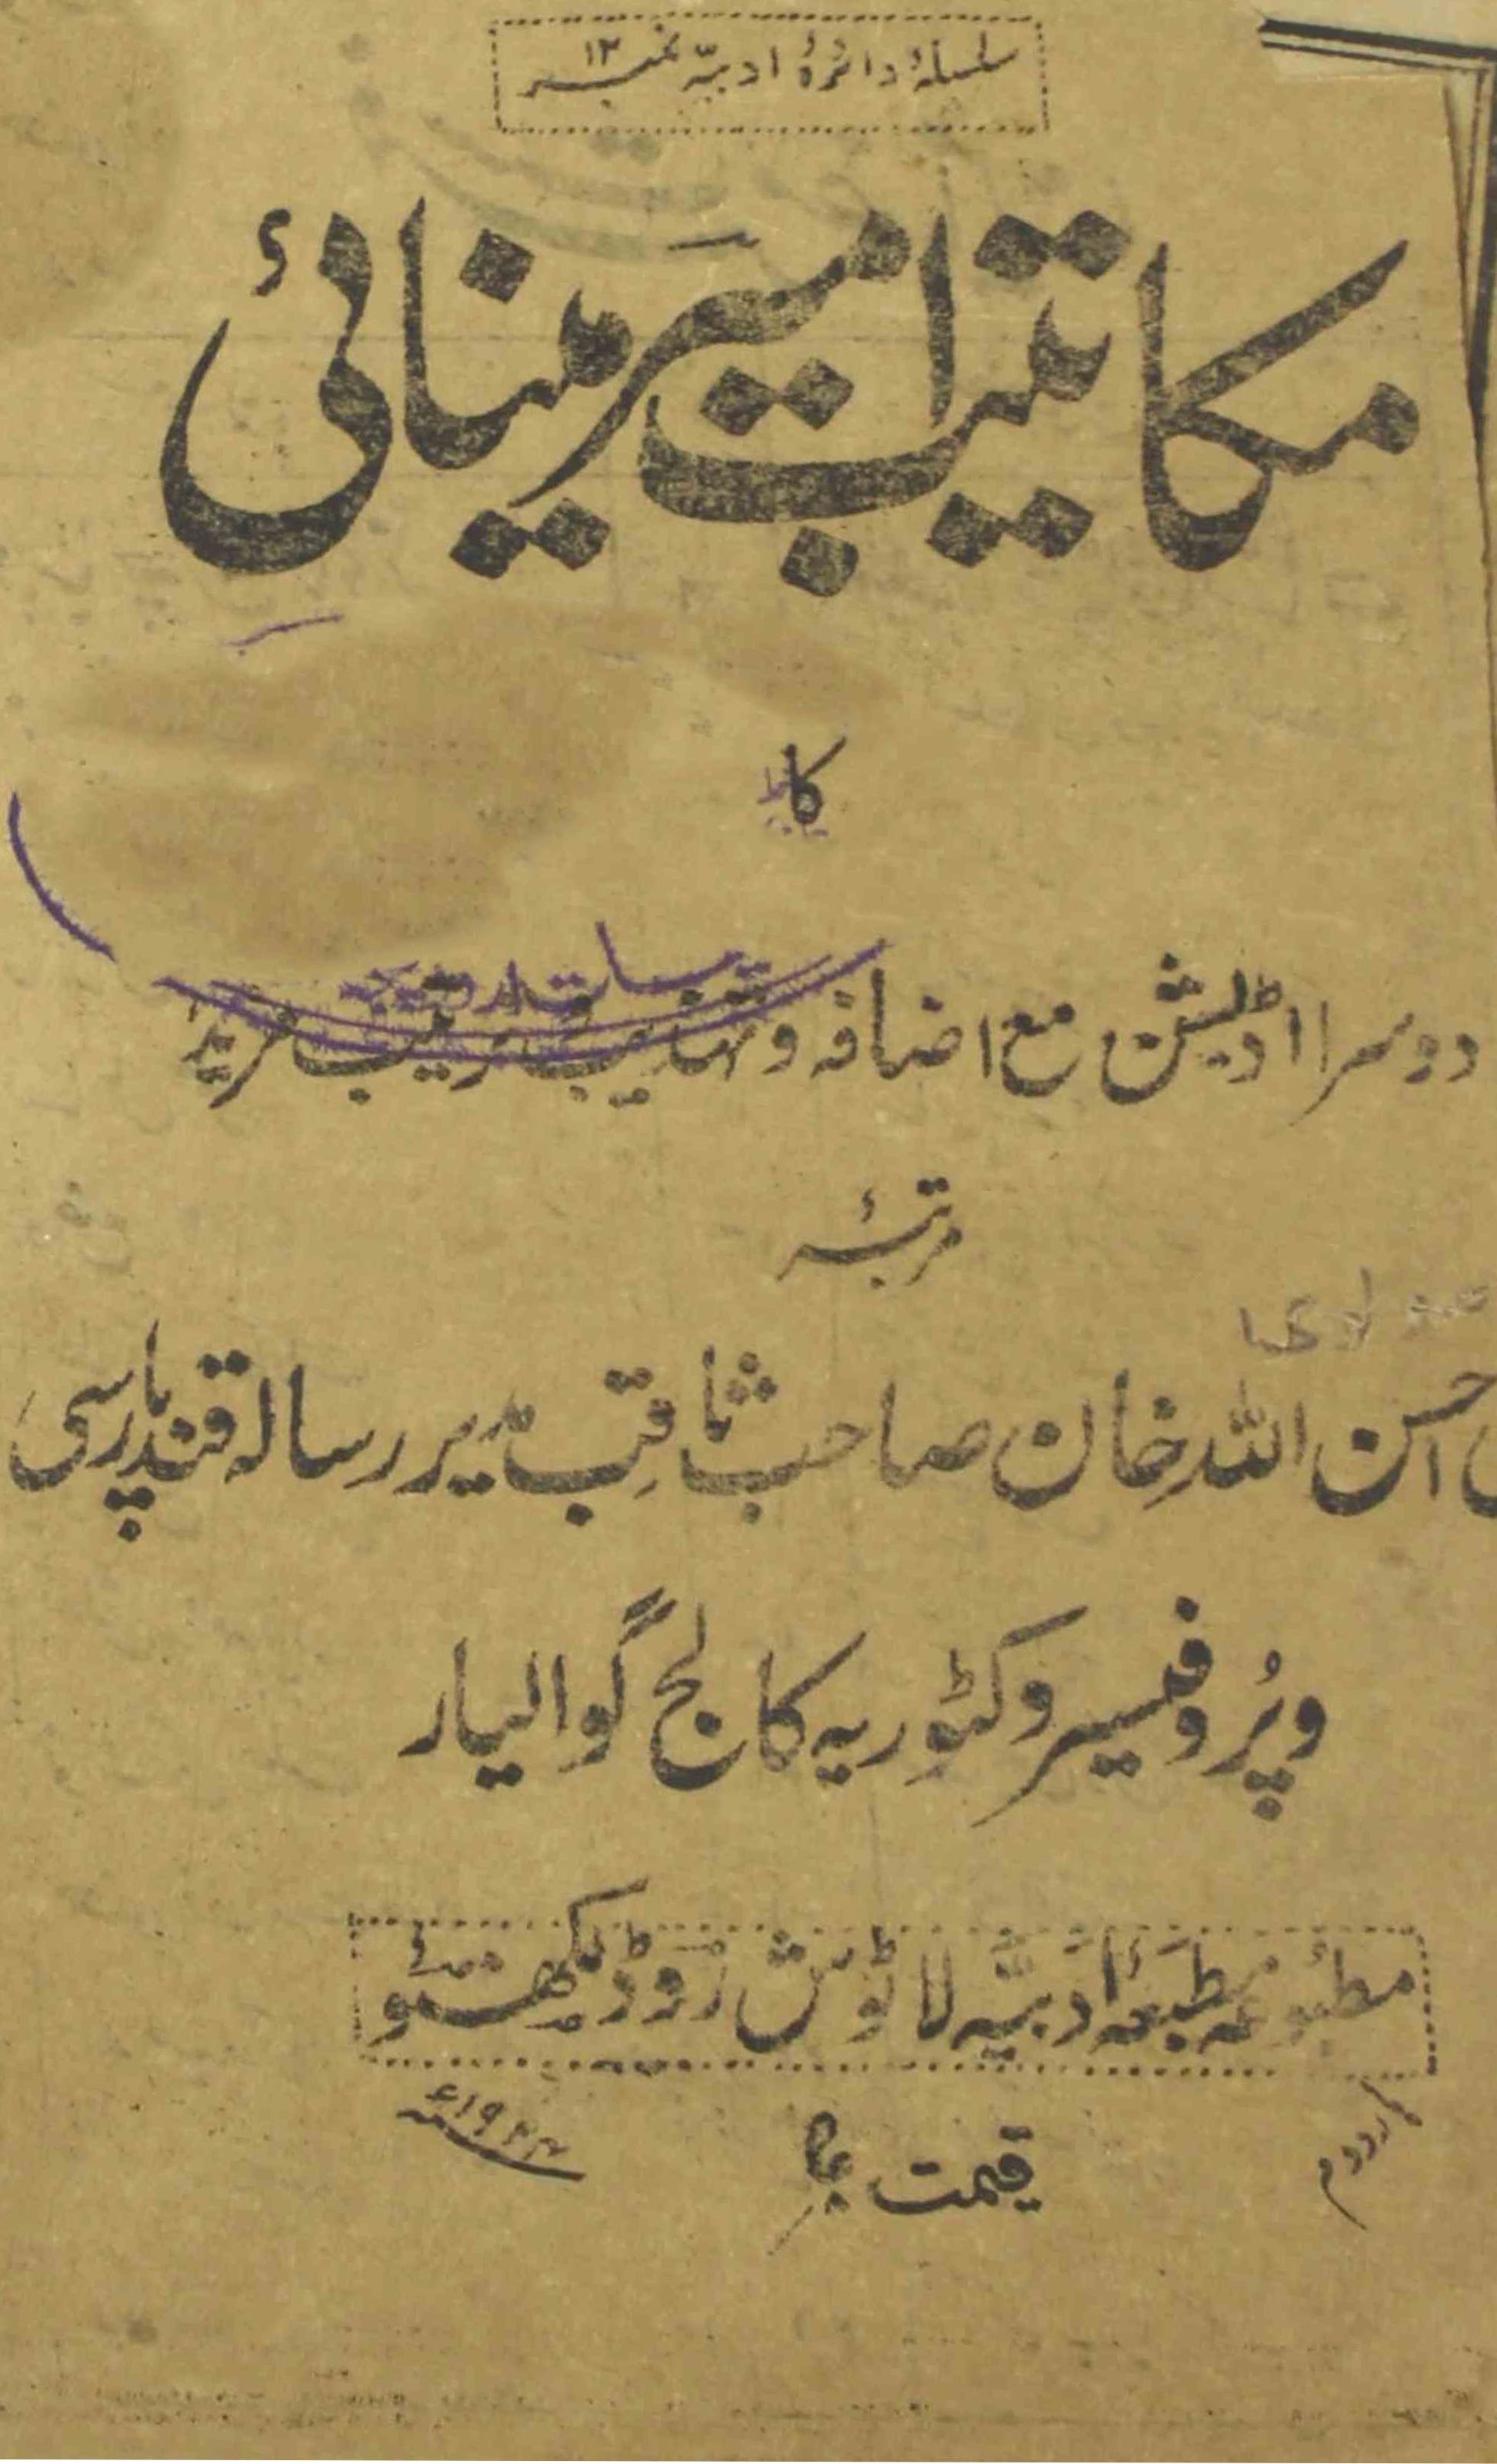 سلسلۂ دائرۂ ادبیہ نمبر ۱۲
مکاتیب امیر مینائی
کا
دوسرا اڈیشن مع اضافہ و تہذیب ترتیب مزید
مرتبۂ
احسن اللہ خان صاحب ثاقب مدیر رسالہ قند پارسی
و پروفیسر وکٹوریہ کالج گوالیار
مطبوعہ مطبعۂ ادبیہ لاٹوش روڈ لکھنؤ
بار دوم
قیمت
۱۹۲۴ء